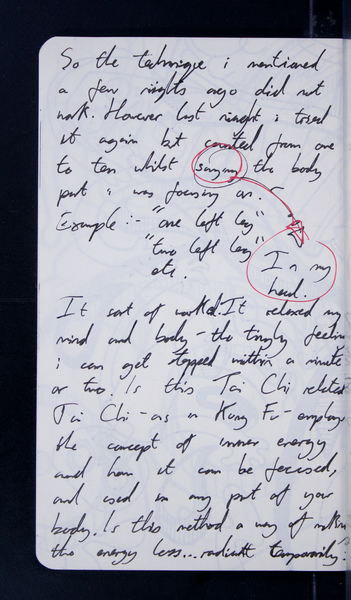 So the technique i mentioned
a few nights ago did not
work. However last night i tried
it again but counted from one
to ten whilst saying the body
part i was focusing on.
Example :- "one left leg"
"two left leg"
etc.
In my
head.
It sort of worked. It relaxed my
mind and body - the tingly feeling
i can get stopped within a minute
or two. Is this Tai Chi related
Tai Chi - as in Kung Fu - employs
the concept of inner energy
and how it can be focused,
and used in any part of your
body. Is this method a way of making
the energy less... radiant temporarily.